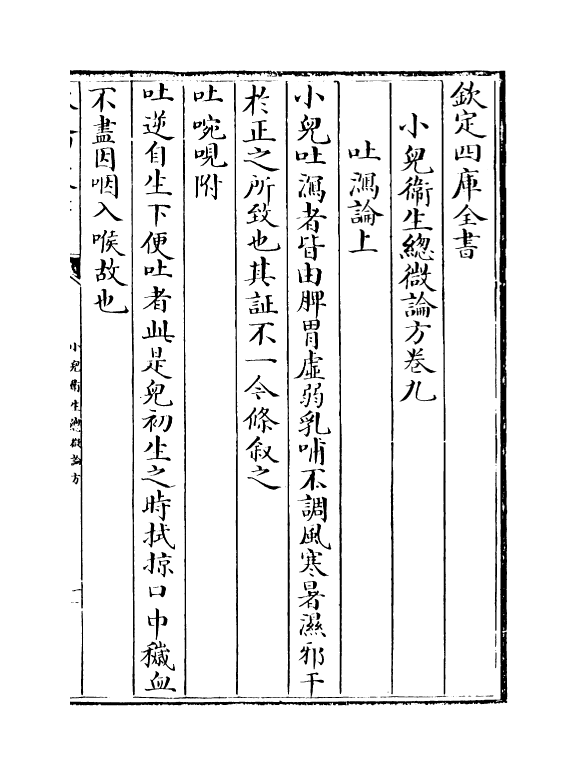 欽定四庫全書
小兒衞生總微論方卷九
吐瀉論上
小兒吐瀉者皆由脾胃虚弱乳哺不調風寒暑濕邪干
於正之所致也其証不一今條叙之
吐㖞哯附
吐逆自生下便吐者此是兒初生之時拭掠口中穢血
不盡因咽入喉故也
小兒衞生總微論方